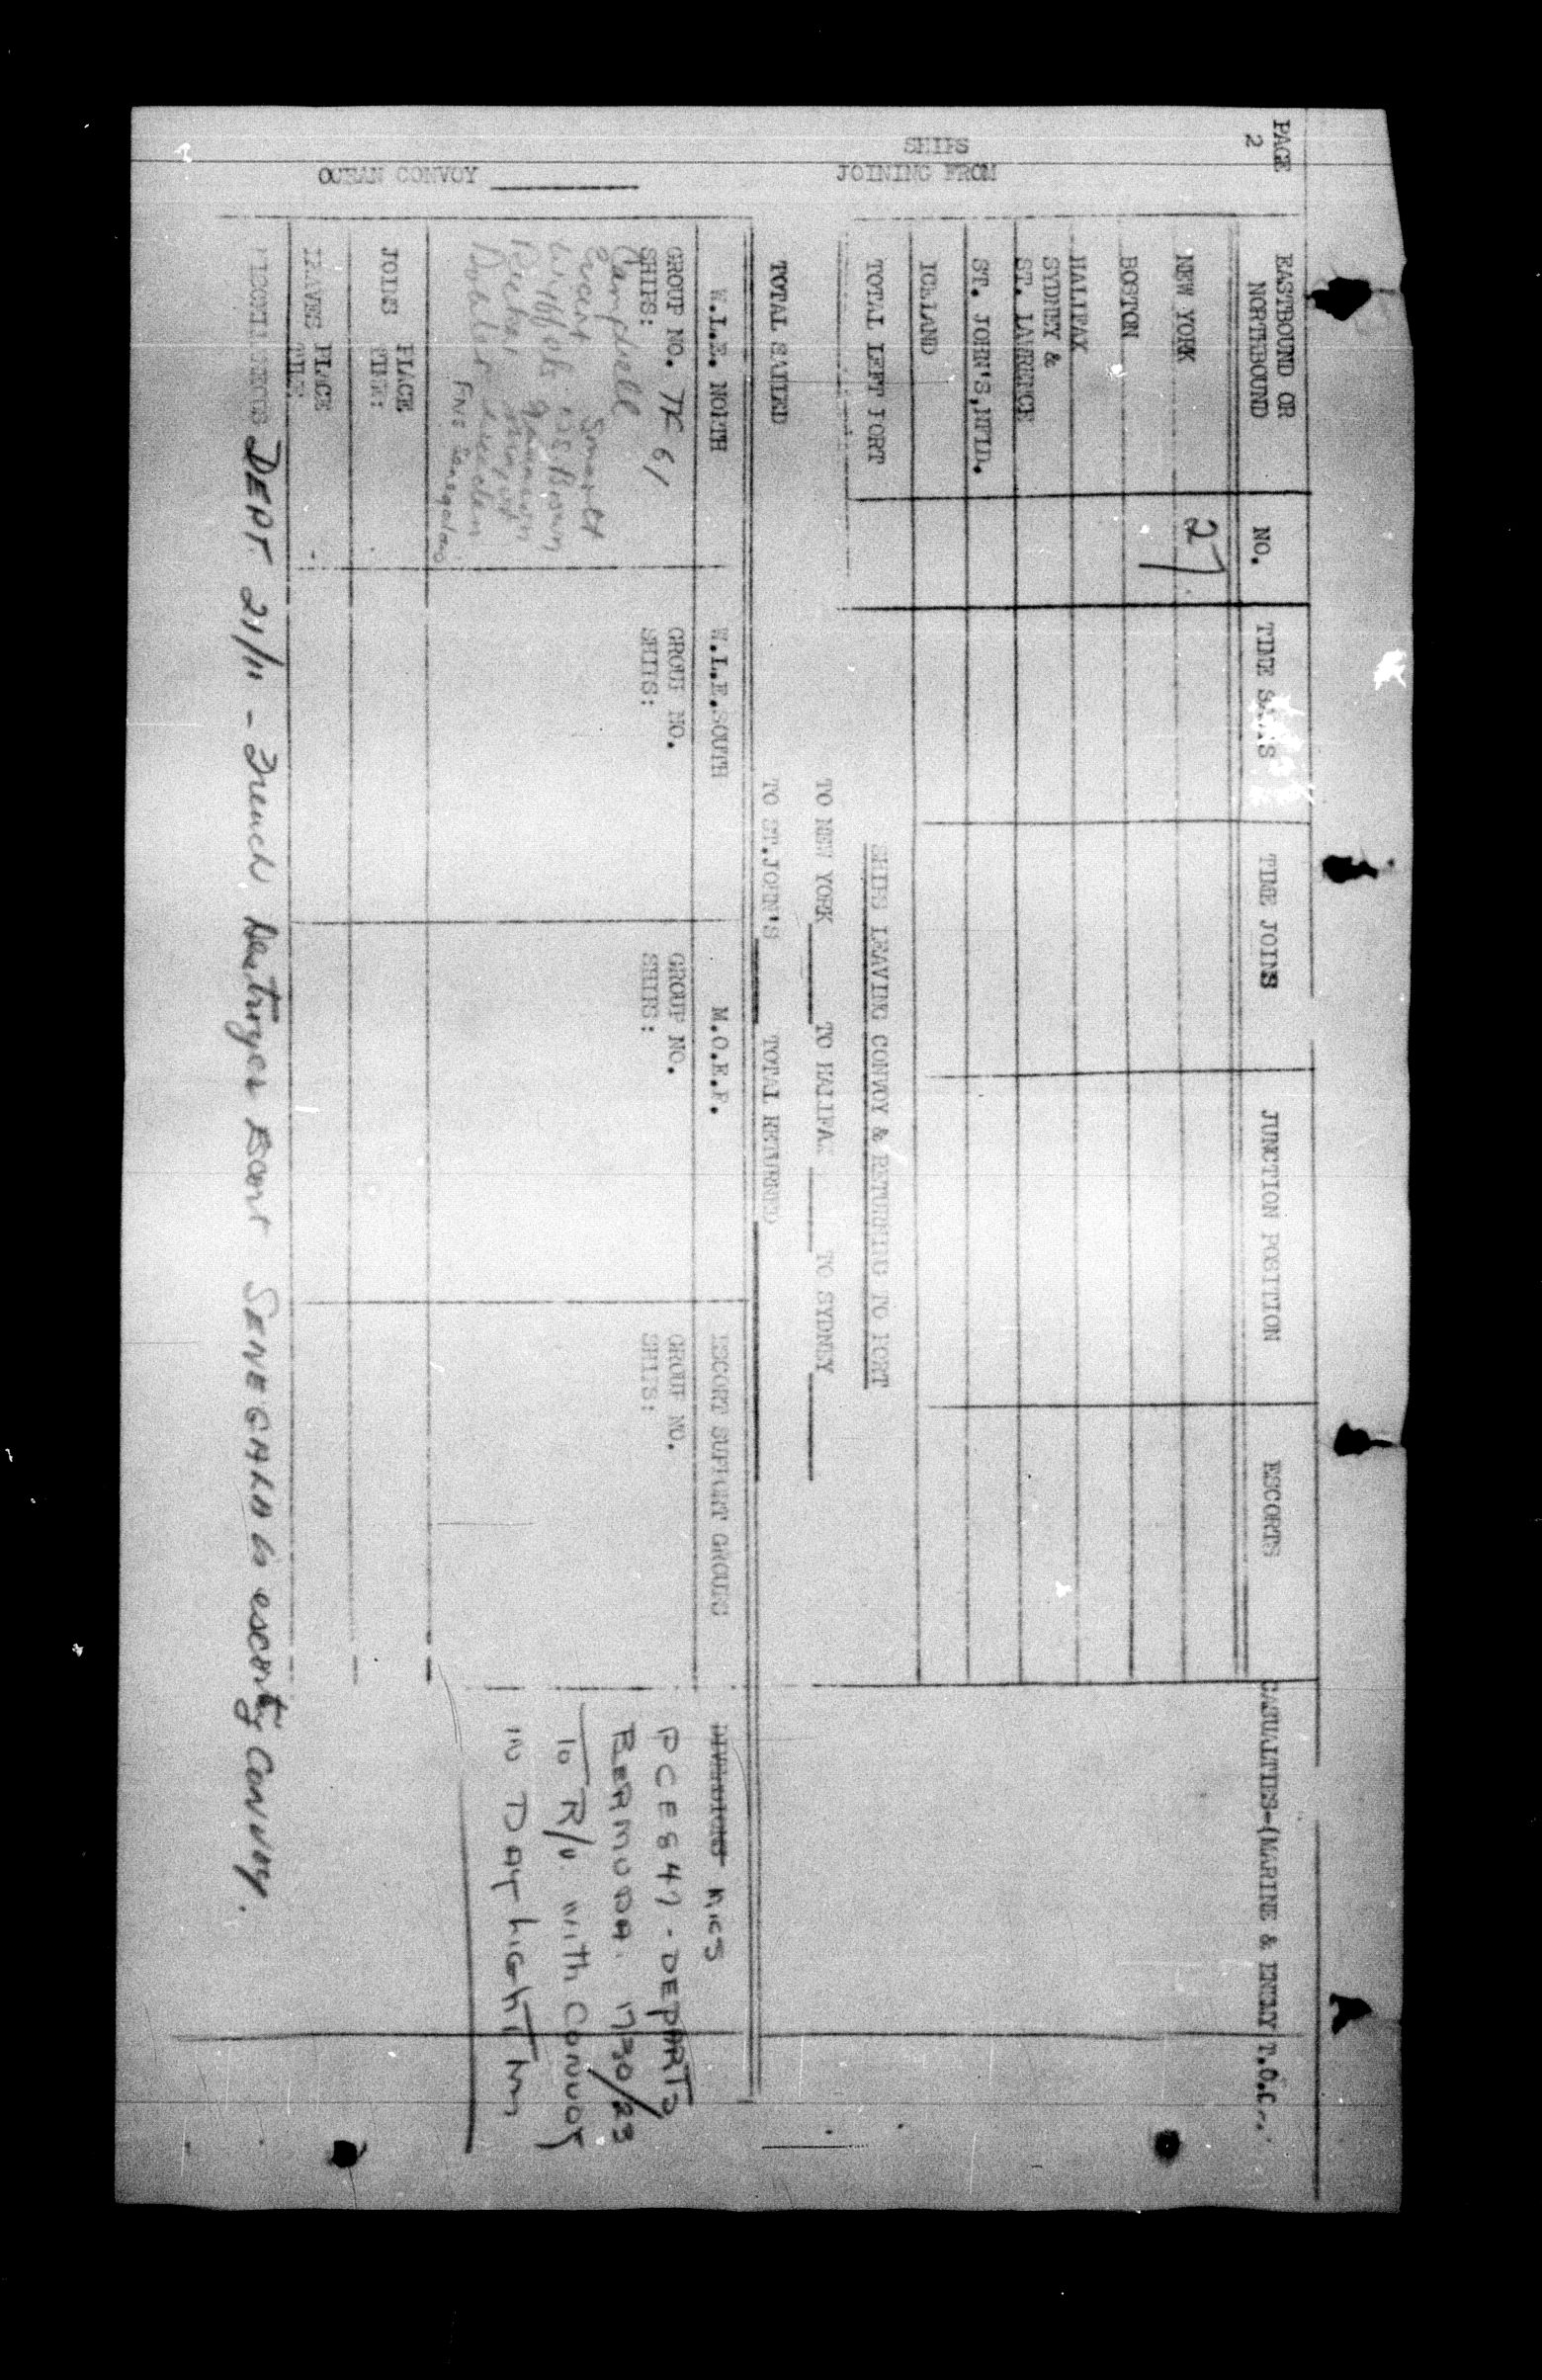 PAGE 2
SHIPS
JOINING FROM
EASTBOUND OR NORTHBOUND NO. TIME JOINS JUNCTION POSITION ESCORTS CASUALTIES-(MARINE & ENEMY)
NEW YORK 27
BOSTON
HALIFAX
SYDNEY &
ST. LAWRENCE
ST. JOHN'S, NFLD.
ICELAND
TOTAL LEFT PORT
SHIPS LEAVING CONVOY & RETURNING TO PORT
TO NEW YORK TO HALIFAX TO SYDNEY
TOTAL SAILED TO ST.JOHN'S TOTAL RETURNED
OCEAN CONVOY
W.L.E. NORTH W.L.E.SOUTH M.O.E.F. ESCORT SUPPORT GROUPS
GROUP NO. TF 61 GROUP NO. GROUP NO. GROUP NO.
SHIPS: SHIPS: SHIPS: SHIPS:
Campbell
PCE 847 - DEPARTS
BERMUDA. 1730/23
To R/V. with CONVOY
IN DAYLIGHT
JOINS PLACE
TIME:
LEAVES PLACE
TIME:
DEPT. 21/11 - French Destroyer Escort SENEGALA is escorting CONVOY.